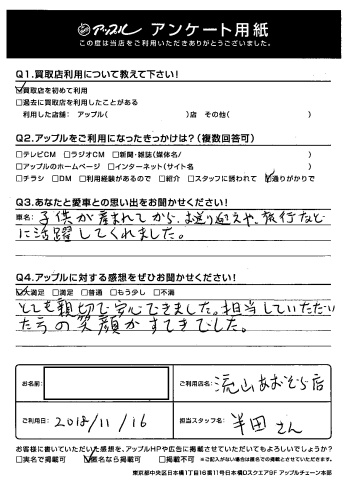 アップル アンケート用紙
この度は当店をご利用いただきありがとうございました。
Q1.買取店利用について教えて下さい!
☑買取店を初めて利用
□過去に買取店を利用したことがある
利用した店舗: アップル( )店 その他( )
Q2.アップルをご利用になったきっかけは?(複数回答可)
□テレビCM □ラジオCM □新聞・雑誌(媒体名/ )
□アップルのホームページ □インターネット(サイト名 )
□チラシ □DM □利用経験があるので □紹介 □スタッフに誘われて ☑通りがかりで
Q3.あなたと愛車との思い出をお聞かせください!
車名: 子供が産まれてから、お送り迎えや、旅行など
に活躍してくれました。
Q4.アップルに対する感想をぜひお聞かせください!
☑大満足 □満足 □普通 □もう少し □不満
とても親切で安心できました。担当していただい
た方の笑顔がすてきでした。
お名前:
ご利用店名: 流山おおぞら店
ご利用日: 2018/11/16
担当スタッフ名: 半田さん
お客様に書いていただいた感想を、アップルHPや広告に掲載させていただいてもよろしいでしょうか?
□実名で掲載可 ☑匿名なら掲載可 □掲載不可 ※ご記入がない場合は匿名での掲載とさせていただきます。
東京都中央区日本橋1丁目16番11号日本橋Dスクエア8F アップルチェーン本部